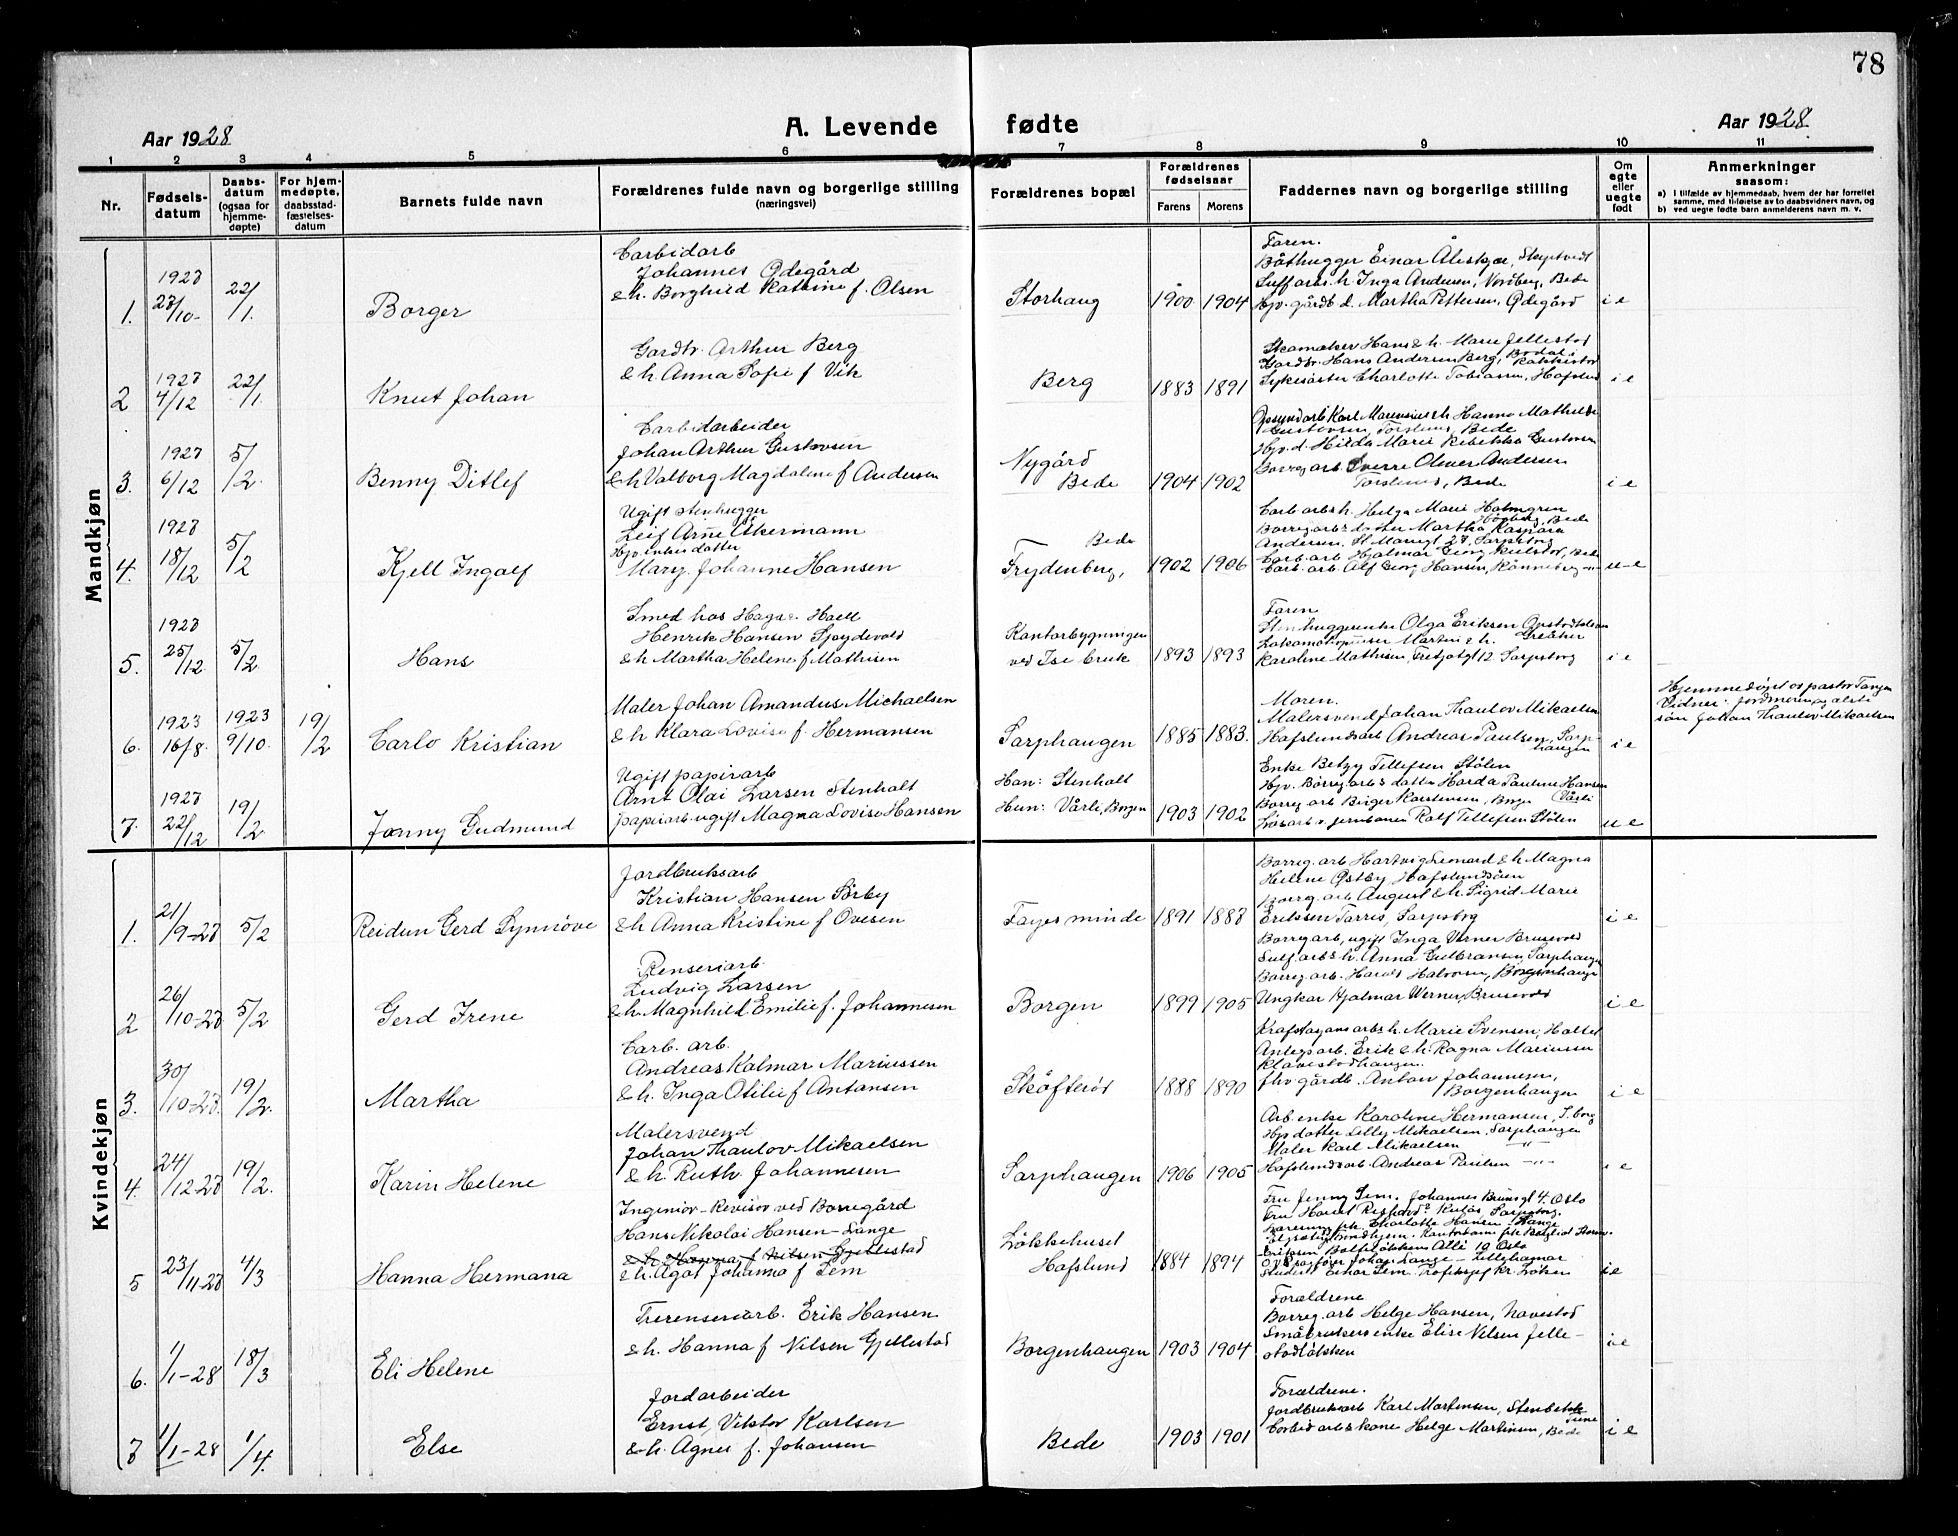 78
Aar 1928
A. Levende fødte
Aar 1928
1 2 3 4 5 6 7 8 9 10 11
Nr.
Fødsels-
datum
Daabs-
datum
(ogsaa for
hjemme-
døpte)
For hjem-
medøpte,
daabsstad-
fæstelses-
datum
Barnets fulde navn
Forældrenes fulde navn og borgerlige stilling
(næringsvei)
Forældrenes bopæl
Forældrenes
fødselsaar
Farens Morens
Faddernes navn og borgerlige stilling
Om
egte
eller
uegte
født
Anmerkninger
saasom:
a) I tilfælde av hjemmedaab, hvem der har forrettet
samme, med tilføielse av to daabsvidners navn, og
b) ved uegte fødte barn anmelderens navn m. v.
Mandkjøn
1. 1927 27/10 22/1. Borger
Carbidarb
Johannes Ødegård
& h. Borghild Katrine f. Olsen
Storhaug 1900 1904
Faren.
Båthugger Einar Åleskjær, Skiptvedt
h Inga Andersen, Nordberg, Bede
Hjv. gårdb d. Martha Pettersen, Ødegård
i e
2 1927 4/12 22/1 Knut Johan
Gardbr. Arthur Berg
& h Anna Sofie f Vik
Berg 1883 1891
Skomaker Hans & h. Marie Jellestad
Gardbr. Hans Andersen Berg,
Sykesøster Charlotte Tobiassen, Hafslund
i e
3. 1927 6/12 5/2. Benny Ditlef
Carbidarbeider
Johan Arthur Gustavsen
& h Valborg Magdalene f Andersen
Nygård
Bede 1904 1902
Karl & h Hanna Mathilde
Gustavsen, Torstenes, Bede
Hjv. d. Hilda Marie Rebekka Gustavsen
Borreg arb Sverre Olmer Andersen
Torstenes, Bede
i e
4. 1927 18/12 5/2 Kjell Ingolf
Ugift stenhugger
Leif Arne Akermann
Hjv. enkes datter
Mary Johanne Hansen
Bede
Frydenberg, 1902 1906
Carb arbs h. Helga Marie Holmgren
Borreg arbs datter Martha Kaspara
Andersen, St Mariegt 27, Sarpsborg
Carb. arb Hjalmar Georg Bede
Carb. arb Alf Georg Hansen, Rønneberg -"-
u-e
5. 1927 25/12 5/2 Hans
Smed hos Haga & Hoell
Henrik Hansen Spydevold
& h Martha Helene f Mathisen
Kontorbygningen
ved Ise bruk 1893 1893
Faren
Stenhuggerenke Olga Eriksen
Martin & h.
Karoline Mathisen, 12 Sarpsborg
i e
6. 1923 16/8. 1923 9/10. 19/2 Carlo Kristian
Maler Johan Amandus Michaelsen
& h Klara Lovise f. Hermansen
Sarphaugen 1885 1883.
Moren.
Malersvend Johan Thaulov Mikaelsen
Hafslundsarb Andreas Paulsen, Sarp-
haugen
i e
Hjemmedøpt av pastor Tangen
Vidner: Jordmoren og ælste
søn Johan Thaulov Mikaelsen
7. 1927 22/12 19/2 Jonny Gudmund
Ugift papirarb
Arnt Olai Larsen Stenholt
papirarb. ugift Magna Lovise Hansen
Han: Stenholt
Hun: Vårli, Borgen 1903 1902
Enke Betzy Tellefsen Stölen
Hjv. Borreg arbs datter Harda Pauline Hansen
Vårli
Borreg arb Birger Karstensen, Borge
Løsarb v. jernbanen Rolf Tellefsen Stölen
u e
Kvindekjøn
1. 21/9-27 5/2 Reidun Gerd Synnøve
Jordbruksarb
Kristian Hansen Sörby
& h Anna Kristine f Ovesen
Fagesminde 1891 1888
Borreg. arb Hartvig Leonard & h Magna
Helene Østby Hafslundsöen
Borreg. arb August & h. Sigrid Marie
Eriksen Tarris, Sarpsborg
i e
2 26/10-27 5/2 Gerd Irene
Renseriarb.
Ludvig Larsen
& h. Magnhild Emilie f. Johannesen
Borgen 1899 1905
Borreg arb, ugift Inga Verner Brusevold
Sulf arbs h. Anna Gulbransen, Sarphaugen
Borreg arb. Harald Halvorsen, Borgenhaugen
Ungkar Hjalmar Werner, Brusevold
i e
3. 30/10-27 19/2. Martha
Carb. arb.
Andreas Kalmar Mariussen
& h. Inga Otilie f Antonsen
Sköfteröd 1888 1890
h. Marie Svensen,
Anlegsarb. Erik & h. Ragna Mariussen
Klavestadhaugen.
fhv gårdb. Anton Johannesen,
Borgenhaugen
i e
4. 24/12-27 19/2. Karin Helene
Malersvend
Johan Thaulov Mikaelsen
& h. Ruth f Johannesen
Sarphaugen 1906 1905
Arb enke Karoline Hermansen, S.borg
Hjv datter Lilly Mikaelsen, Sarphaugen
Maler Karl Mikaelsen -"-
Hafslundsarb. Andreas Paulsen -"-
i e
5 23/11-27 4/3 Hanna Hermana
Ingeniør-Revisor ved Borregård
Hans Nikolai Hansen-Lange
& h Hanna f Nilsen Gjellestad
& h. Agot Johanna f Sem
Løkkehuset
Hafslund 1884 1894
Fru Jenny Sem, Johannes Brunsgt 4. Oslo
Fru Sarpsborg.
frk. Charlotte Hansen-Lange
Eriksen Allé 19 Oslo
Johan Lange - Lillehamar
Student Einar Sem,
i e
6. 1/1-28 18/3 Eli Helene
Trerenseriarb. Erik Hansen
& h. Hanna f Nilsen Gjellestad
Borgenhaugen 1903 1904
Forældrene
Borreg. arb Helge Hansen, Navestad
Småbrukersenke Elise Nilsen Jelle-
stadløkken
i e
7 1/1-28 1/4. Else
Jordarbeider
Ernst Viktor Karlsen
& h. Agnes f. Johansen
Bede 1903 1901
Forældrene.
Jordbruksarb Karl Martinsen,
Carbidarbs kone Helge Martinsen, Bede
i e